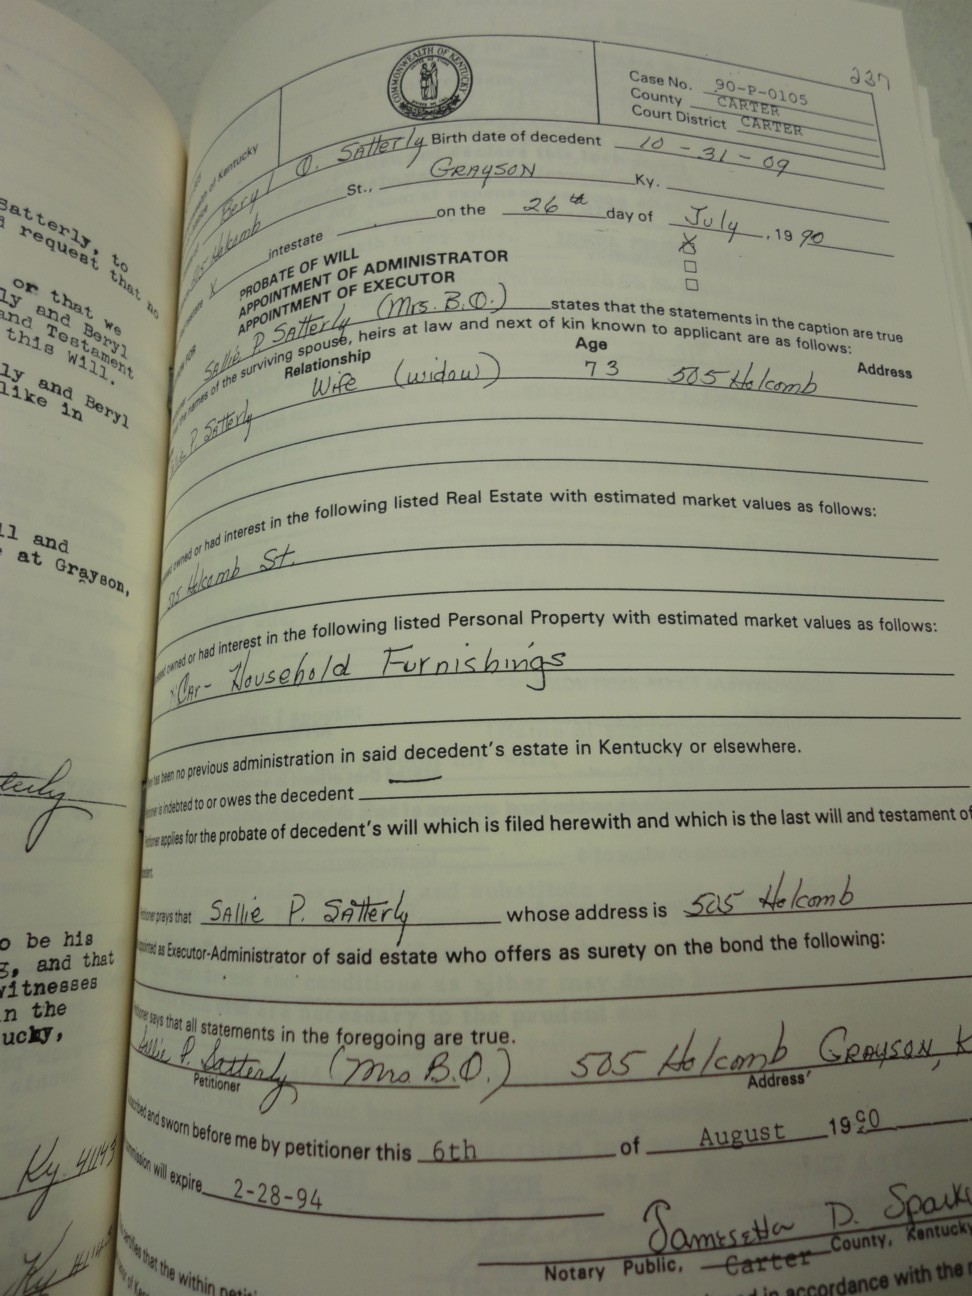 237
COMMONWEALTH OF KENTUCKY
Case No. 90-P-0105
County CARTER
Court District CARTER
of Kentucky
Beryl O. Satterly Birth date of decedent 10-31-09
505 Holcomb St., GRAYSON Ky.
X intestate on the 26th day of July, 1990
PROBATE OF WILL X
APPOINTMENT OF ADMINISTRATOR
APPOINTMENT OF EXECUTOR
Sallie P Satterly (Mrs. B.O.) states that the statements in the caption are true
the names of the surviving spouse, heirs at law and next of kin known to applicant are as follows:
Relationship Age Address
P. Satterly Wife (widow) 73 505 Holcomb
owned or had interest in the following listed Real Estate with estimated market values as follows:
505 Holcomb St.
owned or had interest in the following listed Personal Property with estimated market values as follows:
Car - Household Furnishings
has been no previous administration in said decedent's estate in Kentucky or elsewhere.
is indebted to or owes the decedent —
applies for the probate of decedent's will which is filed herewith and which is the last will and testament of
prays that SAllie P. SATTerly whose address is 505 Holcomb
as Executor-Administrator of said estate who offers as surety on the bond the following:
says that all statements in the foregoing are true.
P. Satterly (Mrs B.O.) 505 Holcomb GRAYSON, K
Petitioner Address
and sworn before me by petitioner this 6th of August 1990
will expire 2-28-94
Jamesetta D. Spark
Notary Public, Carter County, Kentucky
that the within
in accordance with the
Satterly, to
request that no
or that we
ly and Beryl
and Testament
this Will.
ly and Beryl
like in
ll and
at Grayson,
o be his
g, and that
witnesses
in the
ucky,
Ky. 41143
Ky 41143